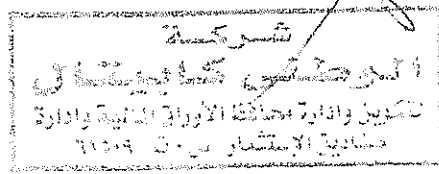 شركة
كابيتال
لتكوين وادارة محافظ الأوراق المالية وادارة
صناديق الإستثمار س.ت